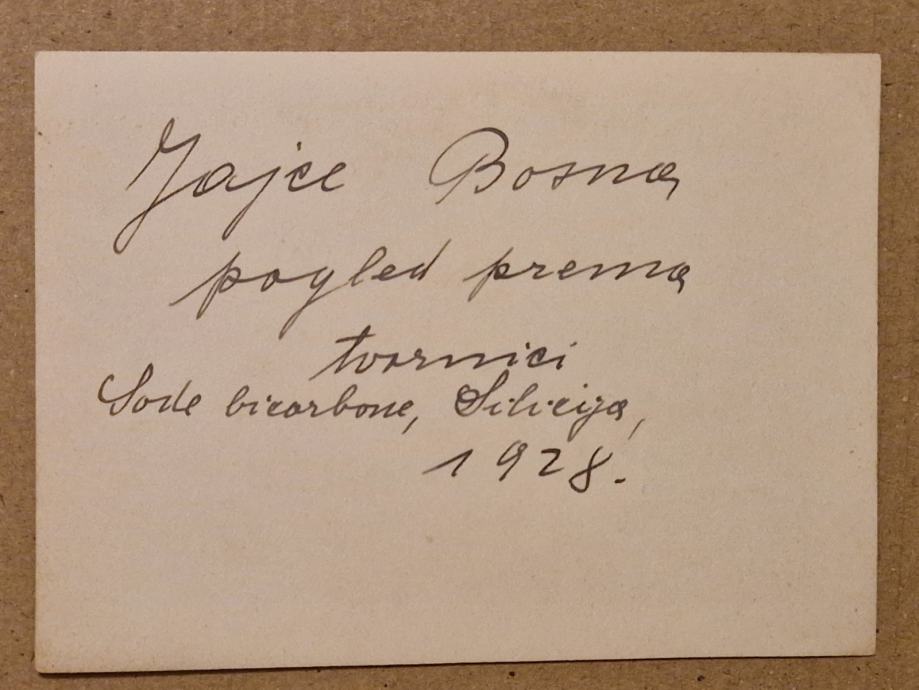 Jajce Bosna
pogled prema
tvornici
Sode bicarbone, Silicija,
1928.